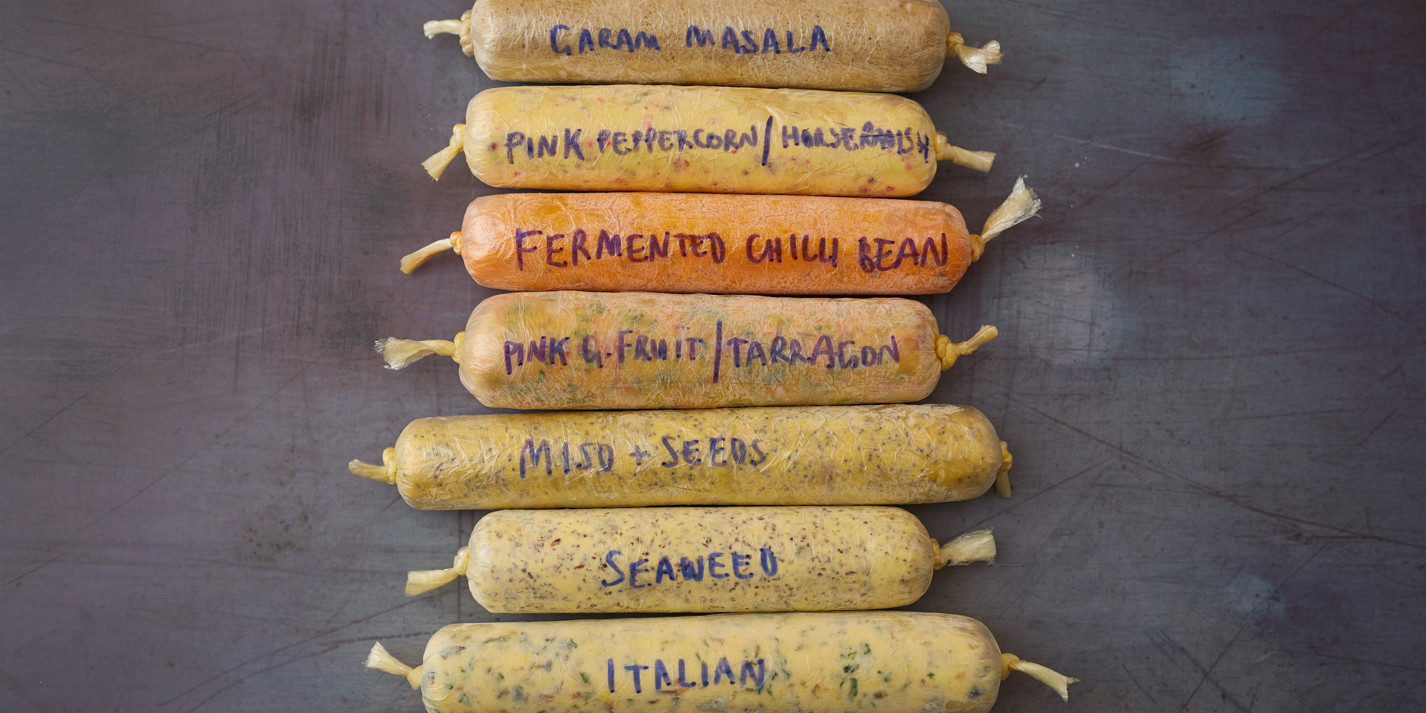 GARAM MASALA
PINK PEPPERCORN/HORSERADISH
FERMENTED CHILLI BEAN
PINK G.FRUIT/TARRAGON
MISO + SEEDS
SEAWEED
ITALIAN